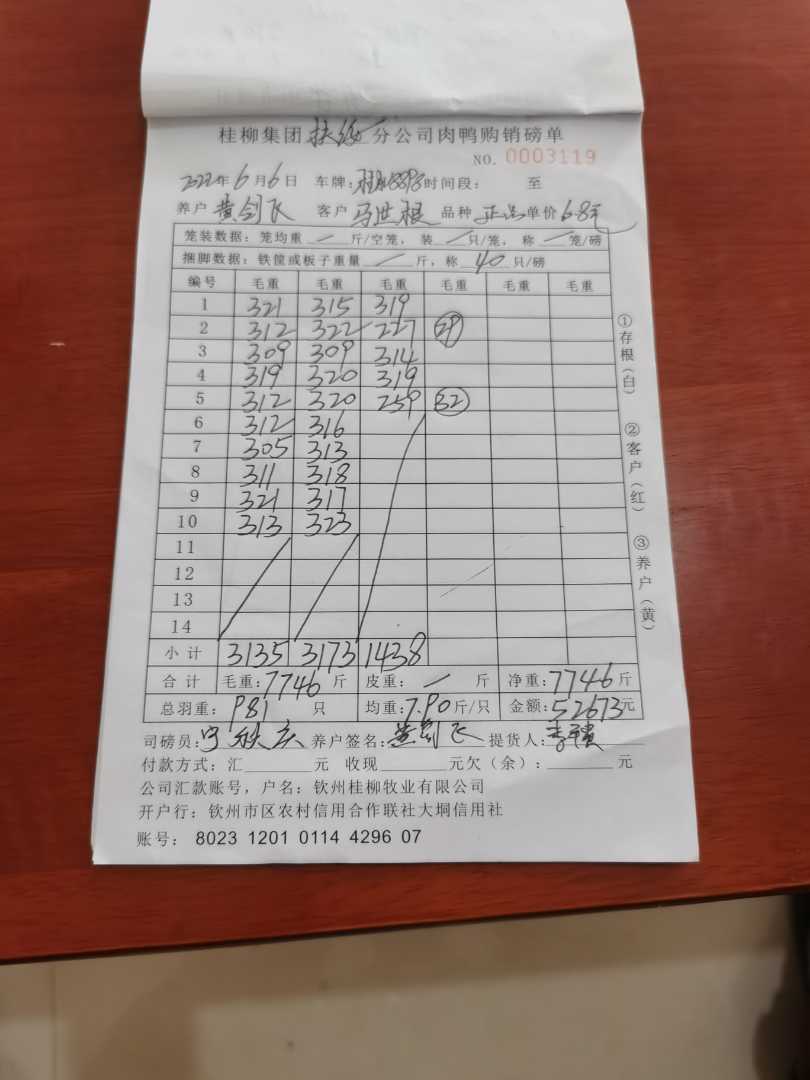 桂柳集团扶绥分公司肉鸭购销磅单
NO. 0003119
2022年6月6日 车牌: 时间段: 至
养户 黄剑飞 客户 马世根 品种 正品 单价 6.8元
笼装数据: 笼均重 / 斤/空笼, 装 / 只/笼, 称 / 笼/磅
捆脚数据: 铁筐或板子重量 / 斤, 称 40 只/磅
编号 毛重 毛重 毛重 毛重 毛重 毛重
1 321 315 319
2 312 322 227 29
3 309 309 314
4 319 320 319
5 312 320 259 32
6 312 316
7 305 313
8 311 318
9 321 317
10 313 323
11
12
13
14
小计 3135 3173 1438
合计 毛重: 7746 斤 皮重: / 斤 净重: 7746 斤
总羽重: 981 只 均重: 7.90 斤/只 金额: 52673 元
①存根(白) ②客户(红) ③养户(黄)
司磅员: 养户签名: 黄剑飞 提货人:
付款方式: 汇 元 收现 元欠(余): 元
公司汇款账号, 户名: 钦州桂柳牧业有限公司
开户行: 钦州市区农村信用合作联社大垌信用社
账号: 8023 1201 0114 4296 07